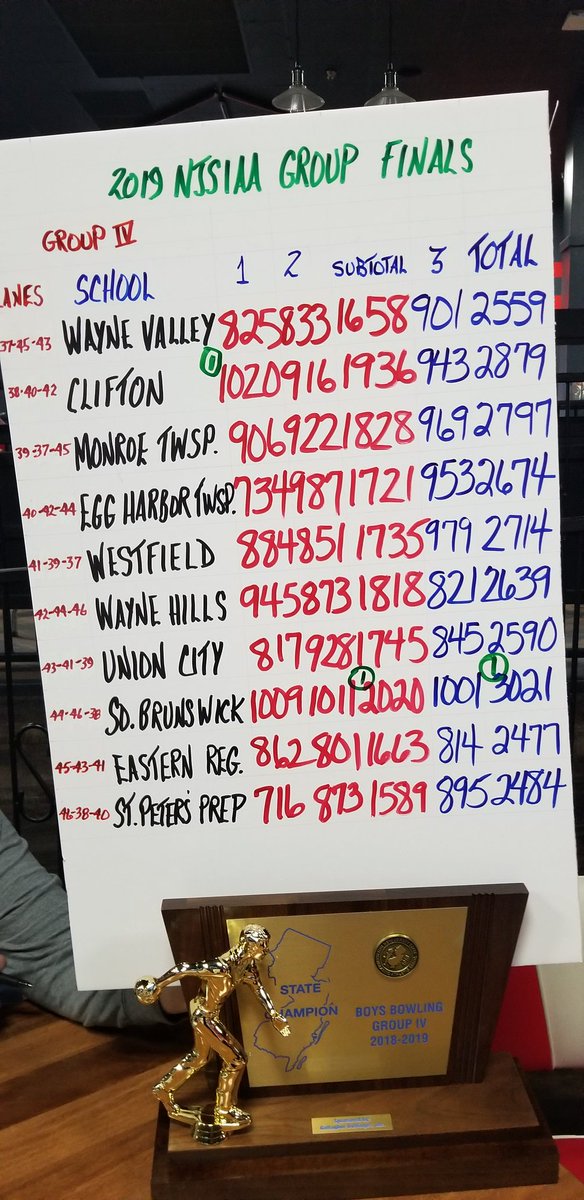 2019 NJSIAA GROUP FINALS
GROUP IV
LANES SCHOOL 1 2 SUBTOTAL 3 TOTAL
37-45-43 WAYNE VALLEY 825 833 1658 901 2559
38-40-42 CLIFTON 1 1020 916 1936 943 2879
39-37-45 MONROE TWSP. 906 922 1828 969 2797
40-42-44 EGG HARBOR TWSP. 734 987 1721 953 2674
41-39-37 WESTFIELD 884 851 1735 979 2714
42-44-46 WAYNE HILLS 945 873 1818 821 2639
43-41-39 UNION CITY 817 928 1745 845 2590
44-46-38 SO. BRUNSWICK 1009 1011 1 2020 1001 1 3021
45-43-41 EASTERN REG. 862 801 1663 814 2477
46-38-40 ST. PETER'S PREP 716 873 1589 895 2484
STATE
CHAMPION
BOYS BOWLING
GROUP IV
2018-2019